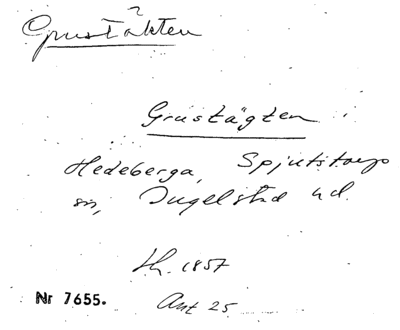 Grustäkten
Grustägten
Hedeberga, Spjutstorps
sn, Ingelstad hd.
Lh. 1857
Nr 7655.
Ant 25